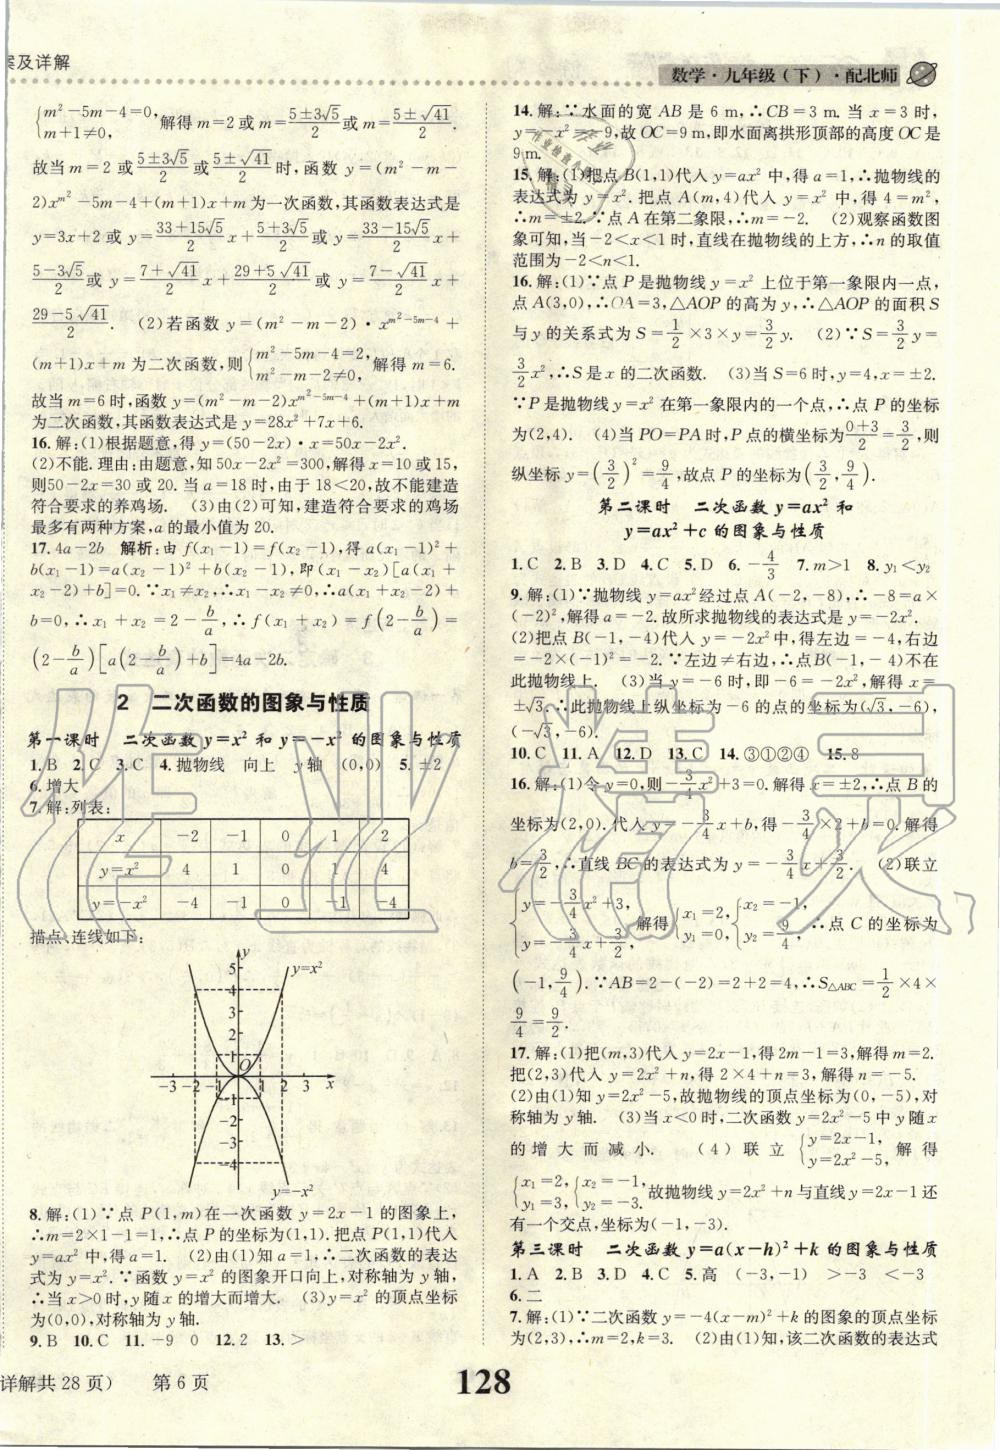 案及详解
数学·九年级(下)·配北师
{m²-5m-4=0, m+1≠0, 解得m=2或m=(5±3√5)/2或m=(5±√41)/2.
故当m=2或(5±3√5)/2或(5±√41)/2时,函数y=(m²-m-
2)x^m²-5m-4+(m+1)x+m为一次函数,其函数表达式是
y=3x+2或y=(33+15√5)/2 x+(5+3√5)/2或y=(33-15√5)/2 x+
(5-3√5)/2或y=(7+√41)/2 x+(29+5√41)/2或y=(7-√41)/2 x+
(29-5√41)/2. (2)若函数y=(m²-m-2)·x^(m²-5m-4)+
(m+1)x+m为二次函数,则{m²-5m-4=2, m²-m-2≠0, 解得m=6.
故当m=6时,函数y=(m²-m-2)x^(m²-5m-4)+(m+1)x+m
为二次函数,其函数表达式是y=28x²+7x+6.
16.解:(1)根据题意,得y=(50-2x)·x=50x-2x².
(2)不能.理由:由题意,知50x-2x²=300,解得x=10或15,
则50-2x=30或20.当a=18时,由于18<20,故不能建造
符合要求的养鸡场. (3)由(2)可知,建造符合要求的鸡场
最多有两种方案,a的最小值为20.
17.4a-2b 解析:由f(x₁-1)=f(x₂-1),得a(x₁-1)²+
b(x₁-1)=a(x₂-1)²+b(x₂-1),即(x₁-x₂)[a(x₁+
x₂-2)+b]=0.∵x₁≠x₂,∴x₁-x₂≠0,∴a(x₁+x₂-2)+
b=0,∴x₁+x₂=2-b/a,∴f(x₁+x₂)=f(2-b/a)=
(2-b/a)[a(2-b/a)+b]=4a-2b.
2 二次函数的图象与性质
第一课时 二次函数y=x²和y=-x²的图象与性质
1.B 2.C 3.C 4.抛物线 向上 y轴 (0,0) 5.±2
6.增大
7.解:列表:
x -2 -1 0 1 2
y=x² 4 1 0 1 4
y=-x² -4 -1 0 -1 -4
描点、连线如下:
y
y=x²
5
4
3
2
1
O
-3 -2 -1 1 2 3 x
-1
-2
-3
-4
y=-x²
8.解:(1)∵点P(1,m)在一次函数y=2x-1的图象上,
∴m=2×1-1=1,∴点P的坐标为(1,1).把点P(1,1)代入
y=ax²中,得a=1. (2)由(1)知a=1,∴二次函数的表达
式为y=x².∵函数y=x²的图象开口向上,对称轴为y轴,
∴当x>0时,y随x的增大而增大. (3)y=x²的顶点坐标
为(0,0),对称轴为y轴.
9.B 10.C 11.-9 0 12.2 13.>
14.解:∵水面的宽AB是6 m,∴CB=3 m.当x=3时,
y=-x²=-9,故OC=9 m,即水面离拱形顶部的高度OC是
9 m.
15.解:(1)把点B(1,1)代入y=ax²中,得a=1,∴抛物线的
表达式为y=x².把点A(m,4)代入y=x²中,得4=m²,
∴m=±2.∵点A在第二象限,∴m=-2. (2)观察函数图
象可知,当-2<x<1时,直线在抛物线的上方,∴n的取值
范围为-2<n<1.
16.解:(1)∵点P是抛物线y=x²上位于第一象限内一点,
点A(3,0),∴OA=3,△AOP的高为y,∴△AOP的面积S
与y的关系式为S=1/2×3×y=3/2 y. (2)∵S=3/2 y=
3/2 x²,∴S是x的二次函数. (3)当S=6时,y=4,x=±2.
∵P是抛物线y=x²在第一象限内的一个点,∴点P的坐标
为(2,4). (4)当PO=PA时,P点的横坐标为(0+3)/2=3/2,则
纵坐标y=(3/2)²=9/4,故点P的坐标为(3/2,9/4).
第二课时 二次函数y=ax²和
y=ax²+c的图象与性质
1.C 2.B 3.D 4.C 5.D 6.-4/3 7.m>1 8.y₁<y₂
9.解:(1)∵抛物线y=ax²经过点A(-2,-8),∴-8=a×
(-2)²,解得a=-2.故所求抛物线的表达式是y=-2x².
(2)把点B(-1,-4)代入y=-2x²中,得左边=-4,右边
=-2×(-1)²=-2.∵左边≠右边,∴点B(-1,-4)不在
此抛物线上. (3)当y=-6时,即-6=-2x²,解得x=
±√3.∴此抛物线上纵坐标为-6的点的坐标为(√3,-6),
(-√3,-6).
10.C 11.A 12.D 13.C 14.③①②④ 15.8
16.解:(1)令y=0,则-3/4 x²+3=0.解得x=±2,∴点B的
坐标为(2,0).代入y=-3/4 x+b,得-3/4×2+b=0.解得
b=3/2,∴直线BC的表达式为y=-3/4 x+3/2. (2)联立
{y=-3/4 x²+3, y=-3/4 x+3/2, 解得{x₁=2, y₁=0, {x₂=-1, y₂=9/4, ∴点C的坐标为
(-1,9/4).∵AB=2-(-2)=2+2=4,∴S△ABC=1/2×4×
9/4=9/2.
17.解:(1)把(m,3)代入y=2x-1,得2m-1=3,解得m=2.
把(2,3)代入y=2x²+n,得2×4+n=3,解得n=-5.
(2)由(1)知y=2x²-5,故抛物线的顶点坐标为(0,-5),对
称轴为y轴. (3)当x<0时,二次函数y=2x²-5中y随x
的增大而减小. (4)联立{y=2x-1, y=2x²-5, 解得
{x₁=2, y₁=3, {x₂=-1, y₂=-3, 故抛物线y=2x²+n与直线y=2x-1还
有一个交点,坐标为(-1,-3).
第三课时 二次函数y=a(x-h)²+k的图象与性质
1.A 2.B 3.D 4.C 5.高 (-3,-1) >-3 <-3
6.二
7.解:(1)∵二次函数y=-4(x-m)²+k的图象的顶点坐标
为(2,3),∴m=2,k=3. (2)由(1)知,该二次函数的表达式
详解共28页) 第6页
128